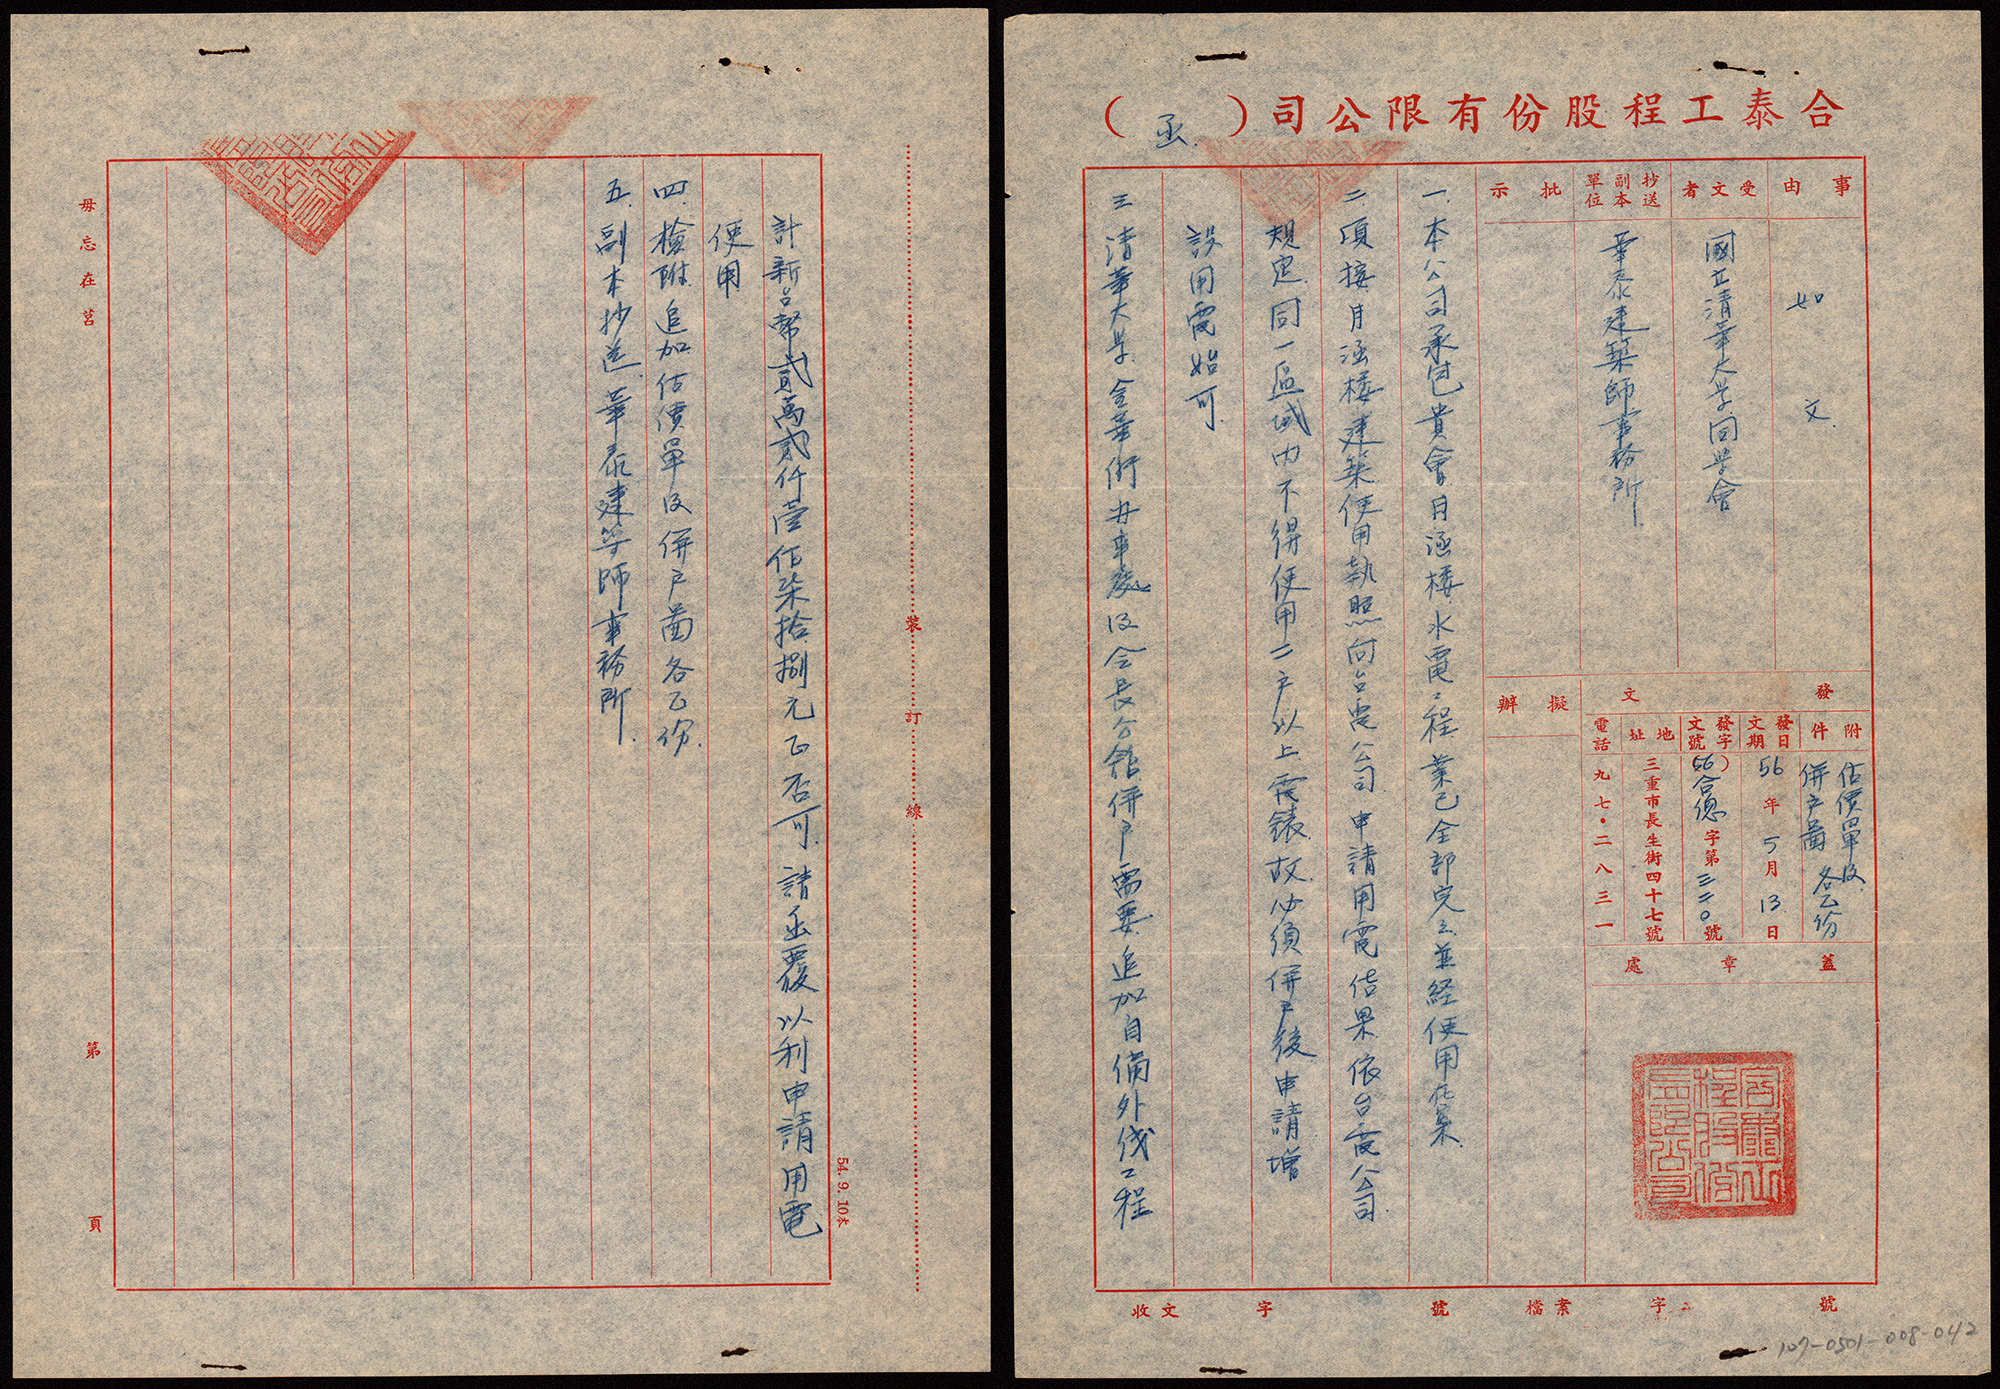 合泰工程股份有限公司（函）
事由
如文
受文者
國立清華大学同学會
抄送副本單位
華泰建築師事務所
批示
擬辦
發文
附件
估價單及
併户啚各乙份
發文日期
56年5月13日
發文字號
(56)合總字第三三〇號
地址
三重市長生街四十七號
電話
九七〇二八三一
蓋章處
一.本公司承包貴會月涵楼水電工程業已全部完工並経使用在案.
二.項接月涵楼建築使用執照向台电公司申請用電結果依台電公司
規定同一區域內不得使用二户以上電錶故必須併户後申請增
設用電始可.
三清華大学金華街办事處及会長公舘併户需要追加自備外线工程
收文 字 號 檔案 字 號
107-0501-008-042
計新台幣貳萬貳仟壹佰柒拾捌元正否可.請函覆以利申請用電
使用
四.檢附追加估價單及併户啚各乙份.
五.副本抄送華泰建築師事務所.
裝訂線
54.9.10本
毋忘在莒
第 頁